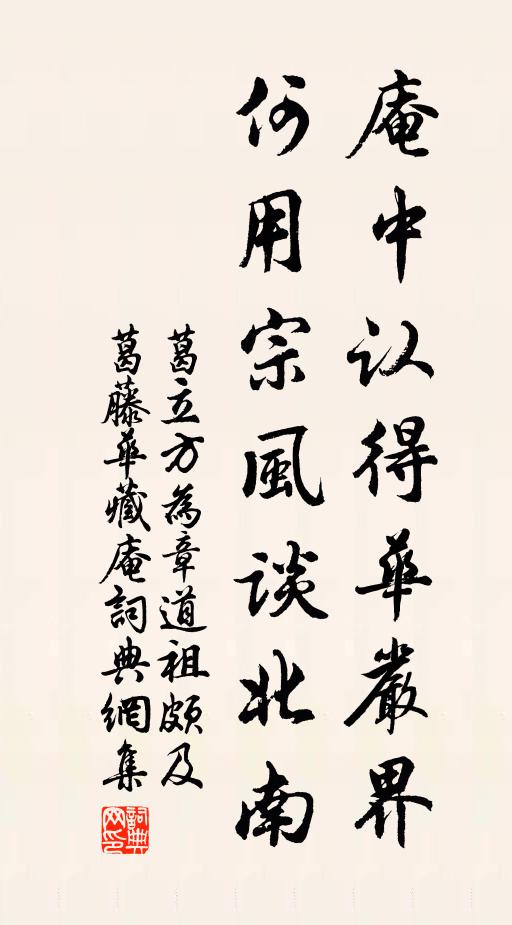 庵中认得華嚴界
何用宗風谈北南
葛立方為章道祖頗及
葛藤華藏庵詞典網集
詞典网印